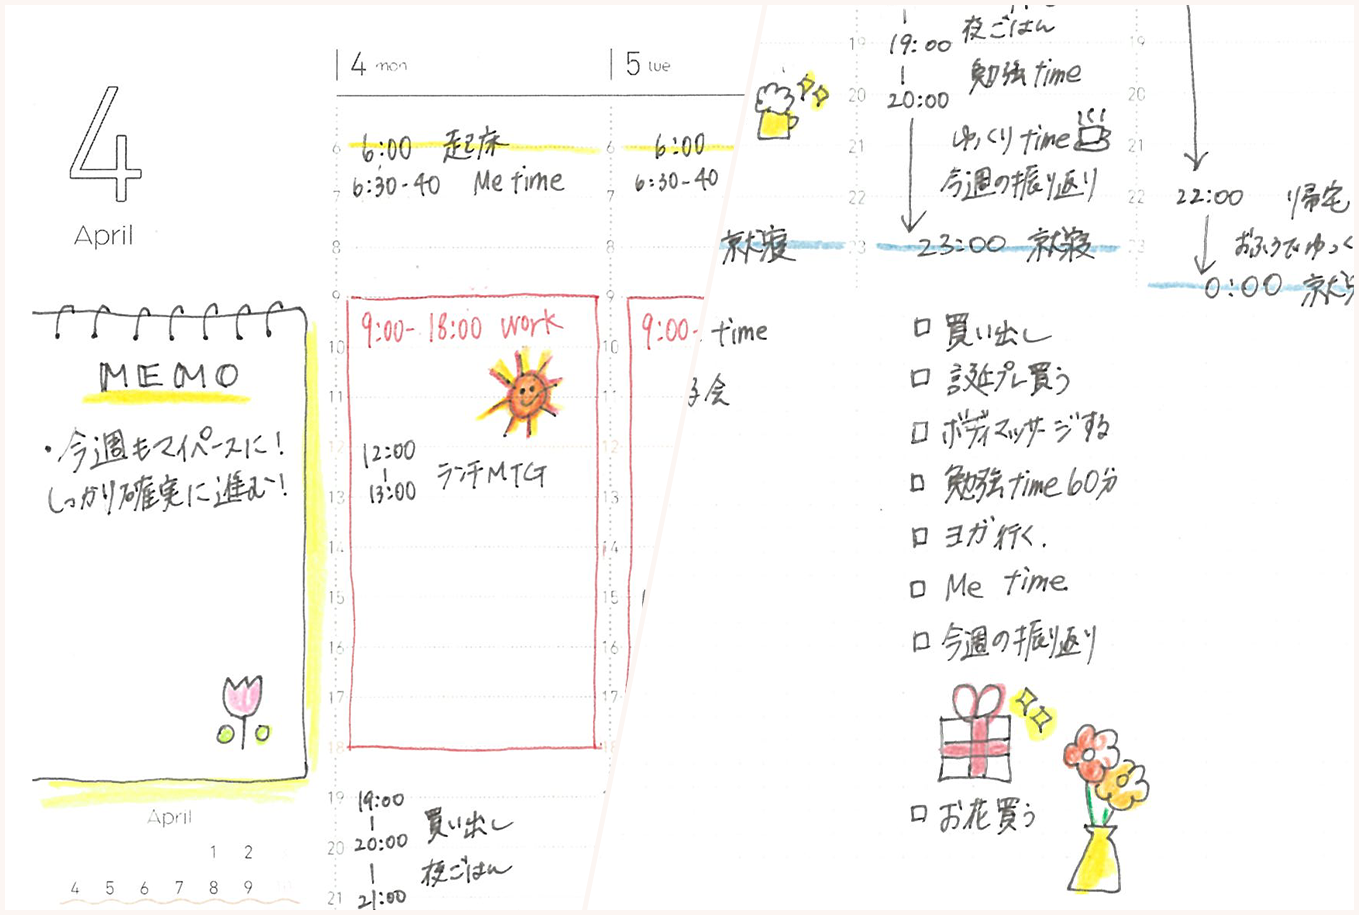 4
April
4 mon
5 tue
6:00 起床
6:00
6:30-40 Me time
6:30-40
MEMO
・今週もマイペースに!
しっかり確実に進む!
9:00-18:00 work
9:00-
12:00
13:00
ランチMTG
19:00
20:00
21:00
買い出し
夜ごはん
April
1 2
4 5 6 7 8 9 10
6
7
8
9
10
11
12
13
14
15
16
17
18
19
20
21
就寝
time
会
19:00
20:00
夜ごはん
勉強time
ゆっくりtime
今週の振り返り
23:00 就寝
22:00 帰宅
おふろでゆっく
0:00 就
19
20
21
22
23
□ 買い出し
□ 誕プレ買う
□ ボディマッサージする
□ 勉強time60分
□ ヨガ行く.
□ Me time
□ 今週の振り返り
□ お花買う